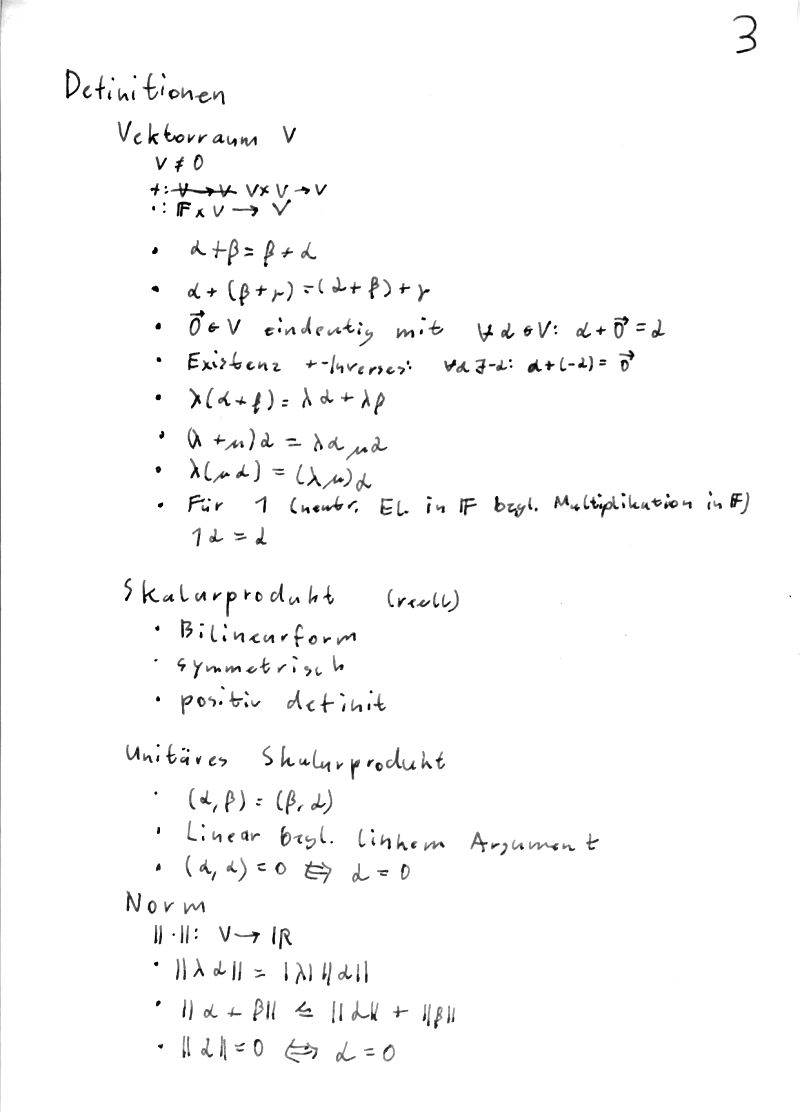 3
Definitionen
Vektorraum V
V ≠ 0
+: V → V V × V → V
·: 𝔽 × V → V
• α + β = β + α
• α + (β + γ) = (α + β) + γ
• 0⃗ ∈ V eindeutig mit ∀ α ∈ V: α + 0⃗ = α
• Existenz +-Inverses: ∀α ∃-α: α + (-α) = 0⃗
• λ(α + β) = λα + λβ
• (λ + μ)α = λα μα
• λ(μα) = (λμ)α
• Für 1 (neutr. El. in 𝔽 bzgl. Multiplikation in 𝔽)
1α = α
Skalarprodukt (reell)
• Bilinearform
• symmetrisch
• positiv definit
Unitäres Skalarprodukt
• (α, β) = (β, α)
• Linear bzgl. linkem Argument
• (α, α) = 0 ⇔ α = 0
Norm
||·||: V → ℝ
• ||λα|| = |λ| ||α||
• ||α + β|| ≤ ||α|| + ||β||
• ||α|| = 0 ⇔ α = 0